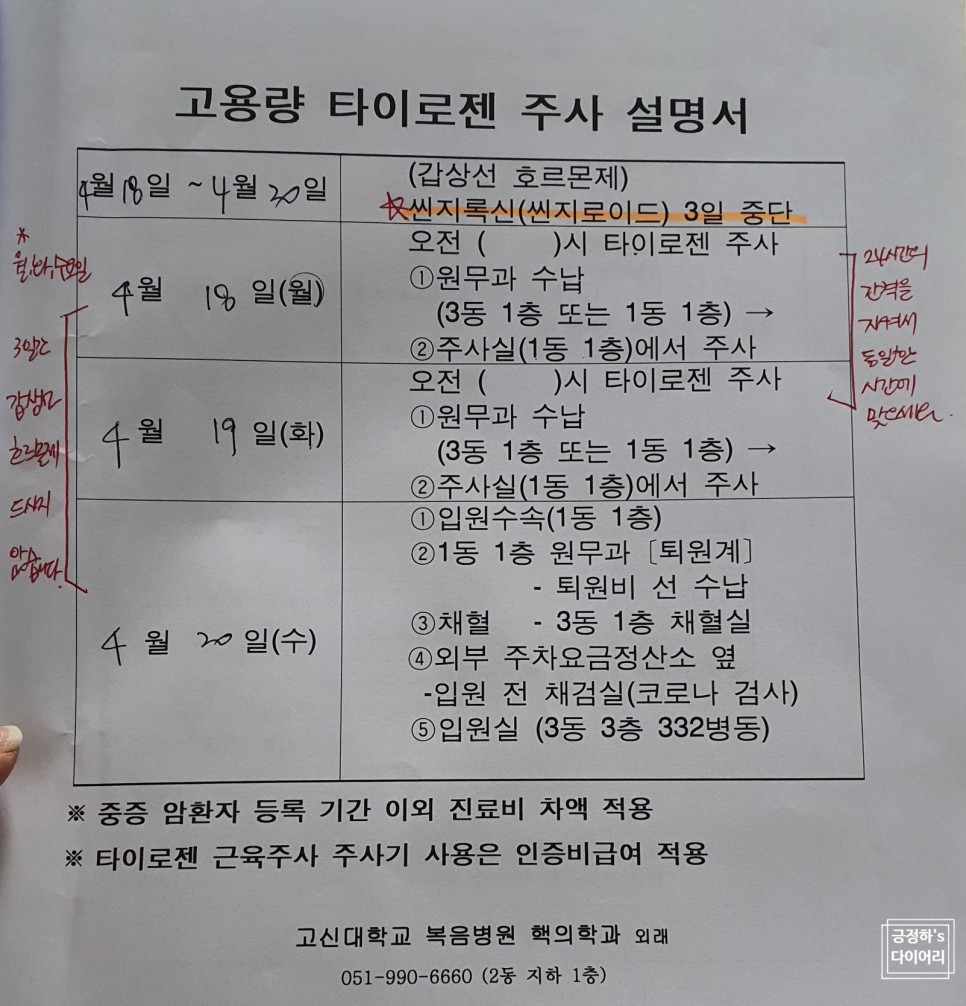 고용량 타이로젠 주사 설명서
4월 18일 ~ 4월 20일
(갑상선 호르몬제)
☆씬지록신(씬지로이드) 3일 중단
*
월,화,수요일
3일간
갑상선
호르몬제
드시지
않습니다.
4월 18일(월)
오전 ( )시 타이로젠 주사
①원무과 수납
(3동 1층 또는 1동 1층) →
②주사실(1동 1층)에서 주사
24시간의
간격을
지켜서
동일한
시간에
맞으세요.
4월 19일(화)
오전 ( )시 타이로젠 주사
①원무과 수납
(3동 1층 또는 1동 1층) →
②주사실(1동 1층)에서 주사
4월 20일(수)
①입원수속(1동 1층)
②1동 1층 원무과 〔퇴원계〕
- 퇴원비 선 수납
③채혈 - 3동 1층 채혈실
④외부 주차요금정산소 옆
-입원 전 채검실(코로나 검사)
⑤입원실 (3동 3층 332병동)
※ 중증 암환자 등록 기간 이외 진료비 차액 적용
※ 타이로젠 근육주사 주사기 사용은 인증비급여 적용
고신대학교 복음병원 핵의학과 외래
051-990-6660 (2동 지하 1층)
긍정하's
다이어리